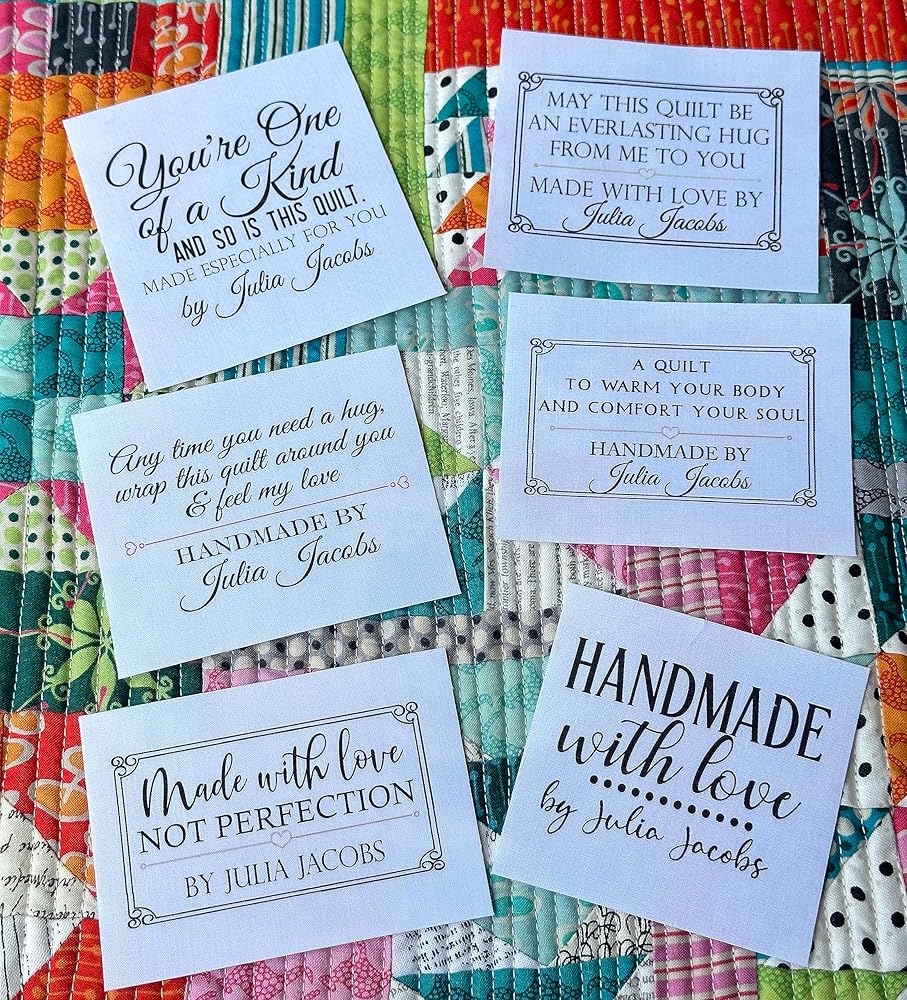 You're One
of a Kind
AND SO IS THIS QUILT.
MADE ESPECIALLY FOR YOU
by Julia Jacobs
MAY THIS QUILT BE
AN EVERLASTING HUG
FROM ME TO YOU
MADE WITH LOVE BY
Julia Jacobs
Any time you need a hug,
wrap this quilt around you
& feel my love
HANDMADE BY
Julia Jacobs
A QUILT
TO WARM YOUR BODY
AND COMFORT YOUR SOUL
HANDMADE BY
Julia Jacobs
Made with love
NOT PERFECTION
BY JULIA JACOBS
HANDMADE
with love
by Julia Jacobs